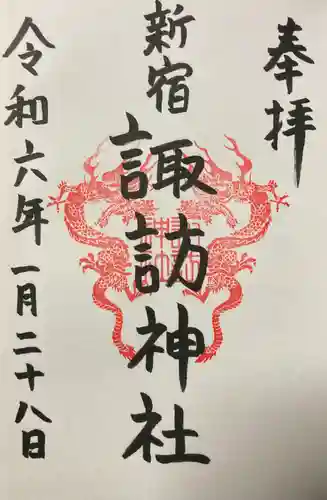 奉拝
新宿
諏訪神社
令和六年一月二十八日